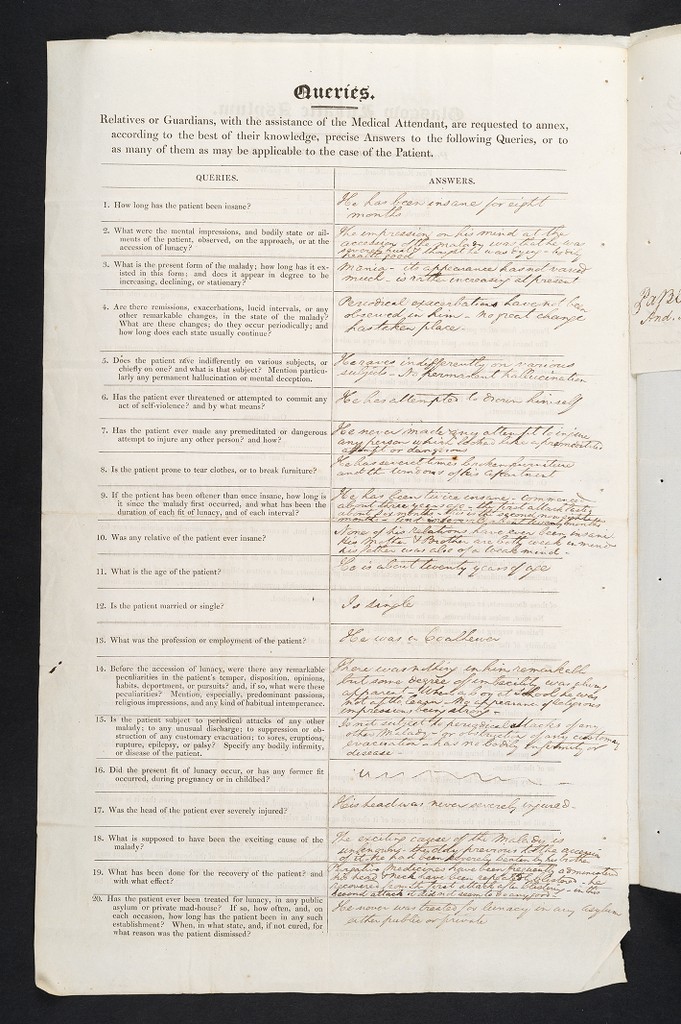 Queries.
Relatives or Guardians, with the assistance of the Medical Attendant, are requested to annex,
according to the best of their knowledge, precise Answers to the following Queries, or to
as many of them as may be applicable to the case of the Patient.
QUERIES.
ANSWERS.
1. How long has the patient been insane?
He has been insane for eight
months
2. What were the mental impressions, and bodily state or ail-
ments of the patient, observed, on the approach, or at the
accession of lunacy?
The impression on his mind at the
accession of the malady was that he was
thought he was dying - being
health good
3. What is the present form of the malady; how long has it ex-
isted in this form; and does it appear in degree to be
increasing, declining, or stationary?
Mania - its appearances has not varied
much - is rather increasing at present
4. Are there remissions, exacerbations, lucid intervals, or any
other remarkable changes, in the state of the malady?
What are these changes; do they occur periodically; and
how long does each state usually continue?
Periodical exacerbations have not been
observed in him - no great change
has taken place -
5. Does the patient rave indifferently on various subjects, or
chiefly on one? and what is that subject? Mention particu-
larly any permanent hallucination or mental deception.
He raves indifferently on various
subjects - No permanent hallucination
6. Has the patient ever threatened or attempted to commit any
act of self-violence? and by what means?
He has attempted to drown himself
7. Has the patient ever made any premeditated or dangerous
attempt to injure any other person? and how?
He never made any attempt to injure
any person which looked like a premeditated
attempt or dangerous
8. Is the patient prone to tear clothes, or to break furniture?
He has several times broken furniture
and the windows of his apartment
9. If the patient has been oftener than once insane, how long is
it since the malady first occurred, and what has been the
duration of each fit of lunacy, and of each interval?
He has been twice insane - commenced
about three years ago - the first attack lasted
about six months - the second now eight
months - and interval about twenty months
10. Was any relative of the patient ever insane?
None of his relations have ever been insane
His Mother & Brother are both weak in mind
his father was also of a weak mind -
11. What is the age of the patient?
He is about twenty years of age
12. Is the patient married or single?
Is single
13. What was the profession or employment of the patient?
He was a Coalhewer
14. Before the accession of lunacy, were there any remarkable
peculiarities in the patient's temper, disposition, opinions,
habits, deportment, or pursuits? and, if so, what were these
peculiarities? Mention, especially, predominant passions,
religious impressions, and any kind of habitual intemperance.
There was nothing in him remarkable
but some degree of imbecility was always
apparent - When a boy at School he was
not apt to learn - No appearance of religious
impressions being strong -
15. Is the patient subject to periodical attacks of any other
malady; to any unusual discharge; to suppression or ob-
struction of any customary evacuation; to sores, eruptions,
rupture, epilepsy, or palsy? Specify any bodily infirmity,
or disease of the patient.
Is not subject to periodical attacks of any
other Malady - or obstruction of any customary
evacuation - has no bodily infirmity or
disease -
16. Did the present fit of lunacy occur, or has any former fit
occurred, during pregnancy or in childbed?
17. Was the head of the patient ever severely injured?
His head was never severely injured -
18. What is supposed to have been the exciting cause of the
malady?
The exciting cause of the Malady is
unknown - the day previous to the accession
of it, he had been severely beaten by his brother
19. What has been done for the recovery of the patient? and
with what effect?
Purgative Medicines have been frequently administered
his head & neck have been repeatedly blistered - he
recovered from the first attack after blistering - in the
second attack it did not seem to do any good -
20. Has the patient ever been treated for lunacy, in any public
asylum or private mad-house? If so, how often, and, on
each occasion, how long has the patient been in any such
establishment? When, in what state, and, if not cured, for
what reason was the patient dismissed?
He never was treated for lunacy in any asylum
either public or private
And.